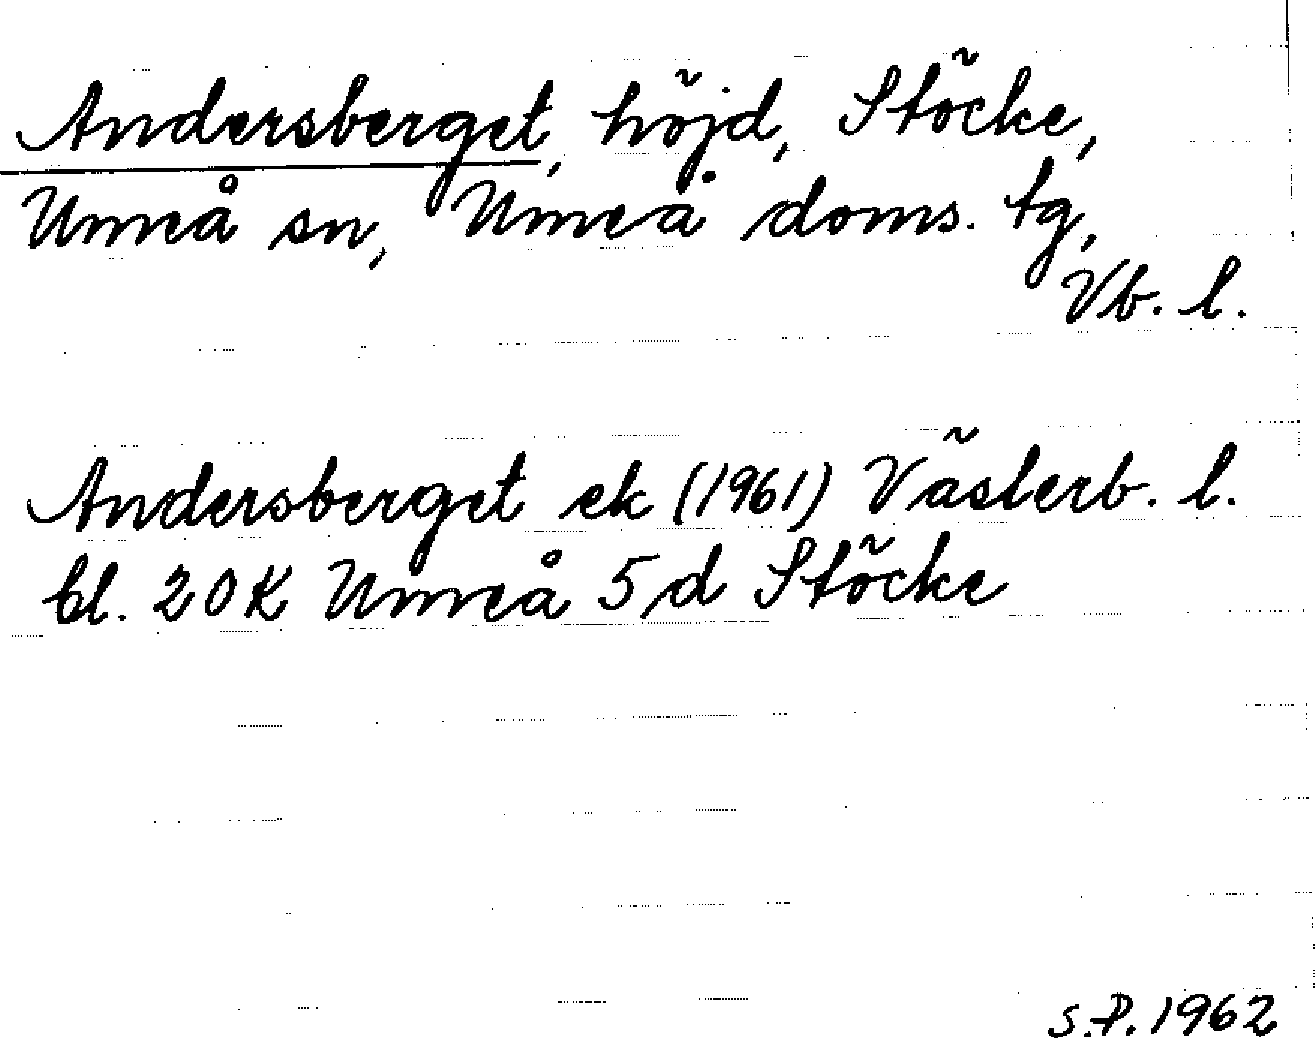 Andersberget, höjd, Stöcke,
Umeå sn, Umeå doms. tg,
Vb. l.
Andersberget ek (1961) Västerb. l.
bl. 20K Umeå 5d Stöcke
S.P. 1962